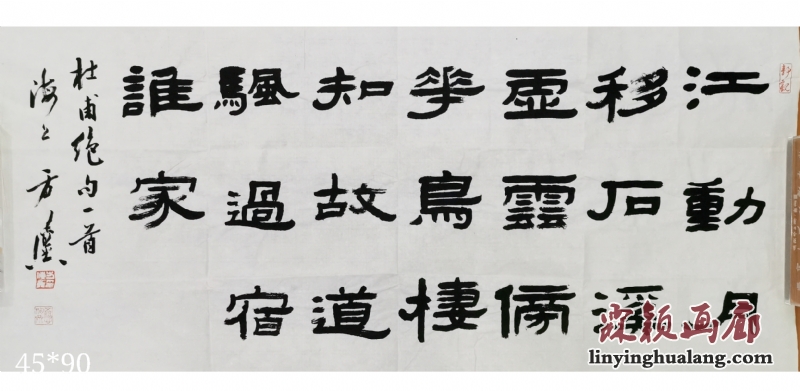 江動月
移石溪
虛雲傍
花鳥棲
知故道
颿過宿
誰家
杜甫絕句一首
海上方
颖画廊
linyinghualang.com
45*90